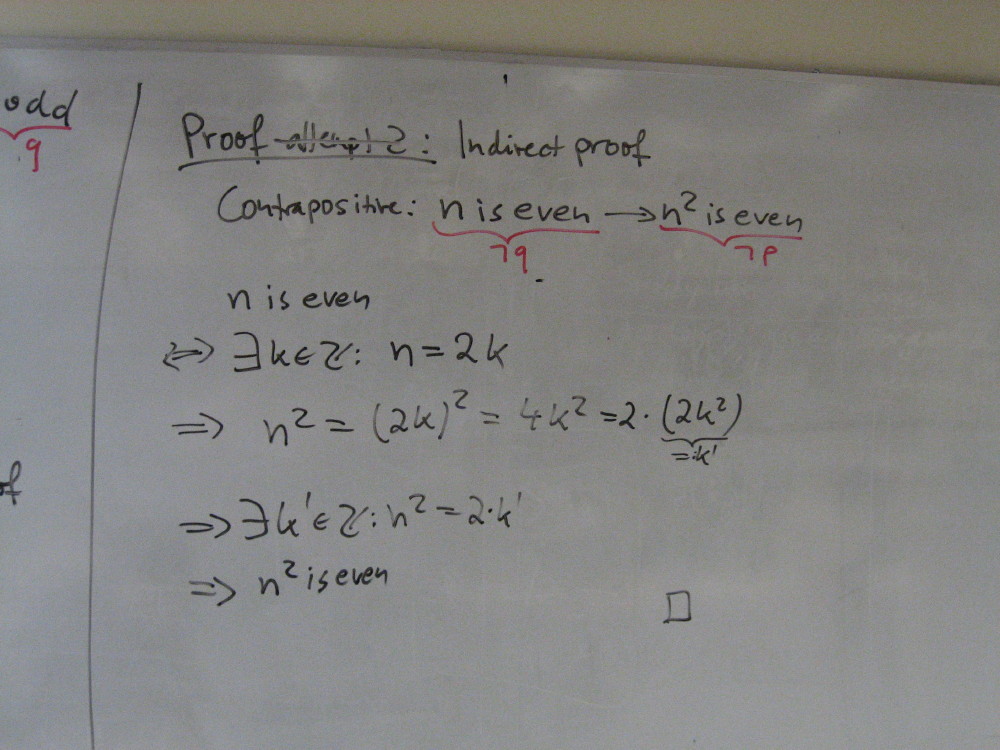 odd
q
Proof attempt 2: Indirect proof
Contrapositive: n is even → n² is even
¬q ¬p
n is even
⇔ ∃k∈ℤ: n = 2k
⇒ n² = (2k)² = 4k² = 2·(2k²)
=:k'
of
⇒ ∃k'∈ℤ: n² = 2·k'
⇒ n² is even
□